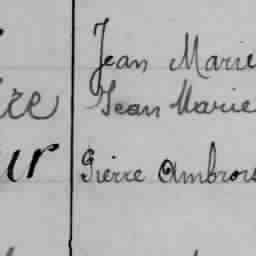 Jean Marie
Jean Marie
Pierre Ambrois